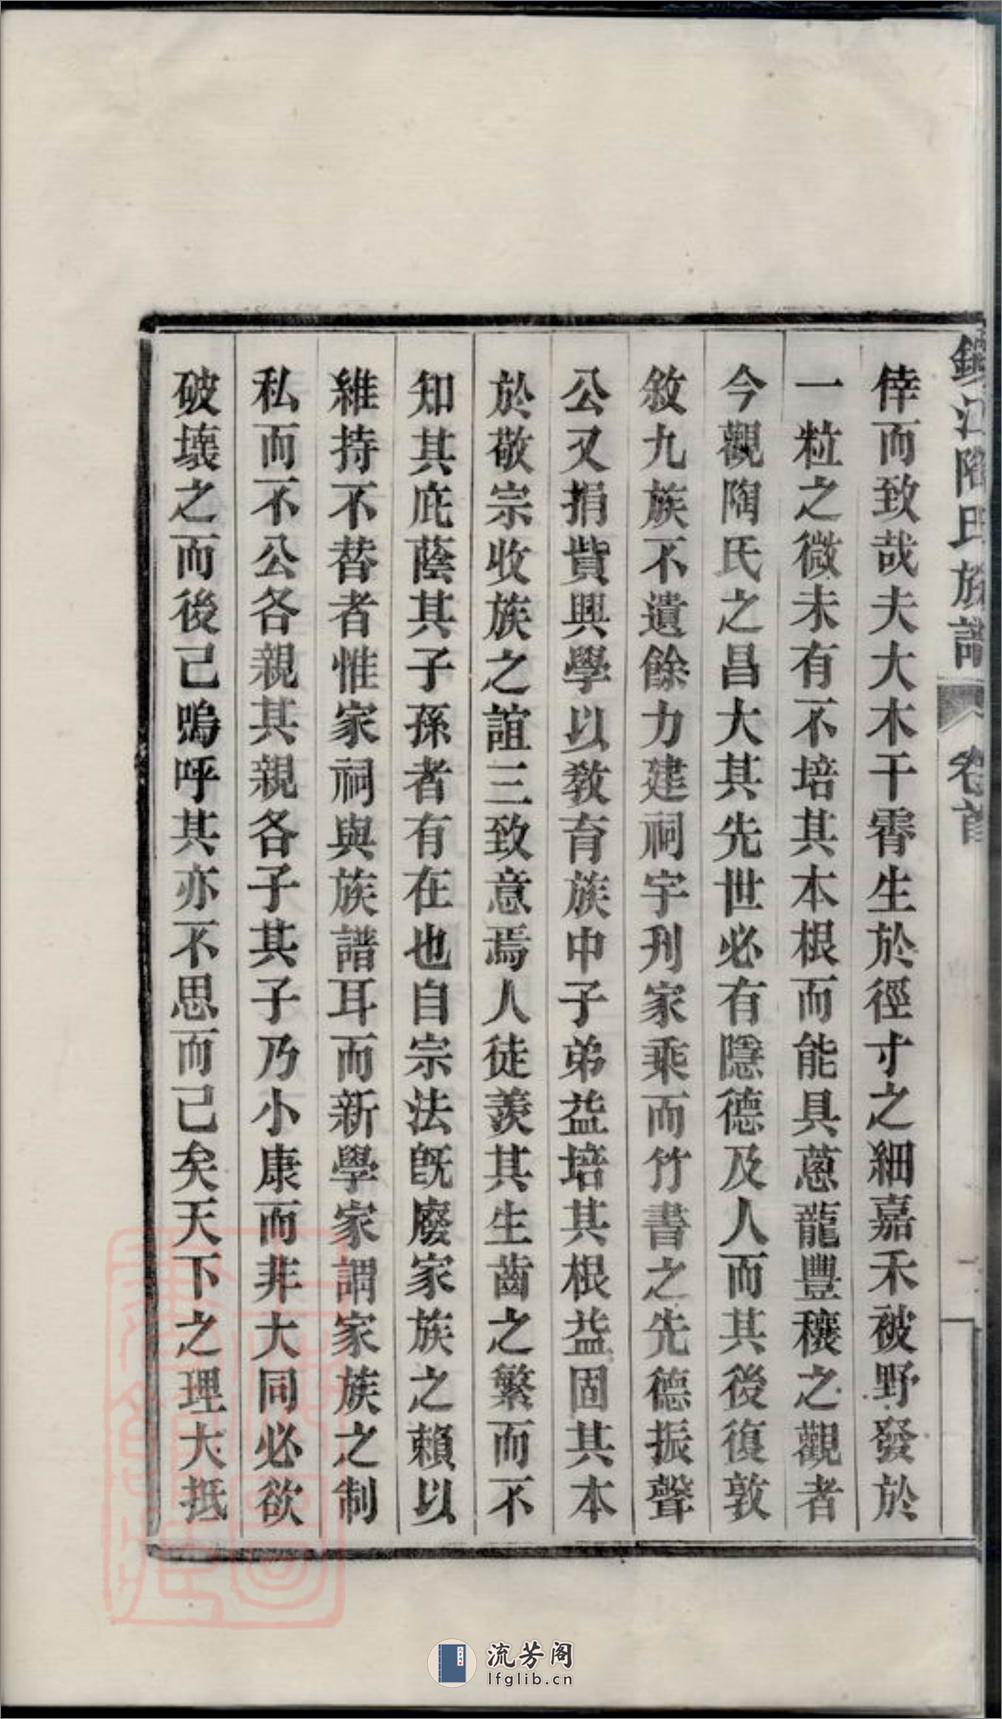 江陶氏族譜 卷首
倖而致哉夫大木干霄生於徑寸之細嘉禾被野發於
一粒之微未有不培其本根而能具蔥蘢豐穰之觀者
今觀陶氏之昌大其先世必有隱德及人而其後復敦
敘九族不遺餘力建祠宇刋家乘而竹書之先德振聲
公又捐貲興學以教育族中子弟益培其根益固其本
於敬宗收族之誼三致意焉人徒羨其生齒之繁而不
知其庇蔭其子孫者有在也自宗法既廢家族之賴以
維持不替者惟家祠與族譜耳而新學家謂家族之制
私而不公各親其親各子其子乃小康而非大同必欲
破壞之而後已嗚呼其亦不思而已矣天下之理大抵
流芳阁
lfglib.cn